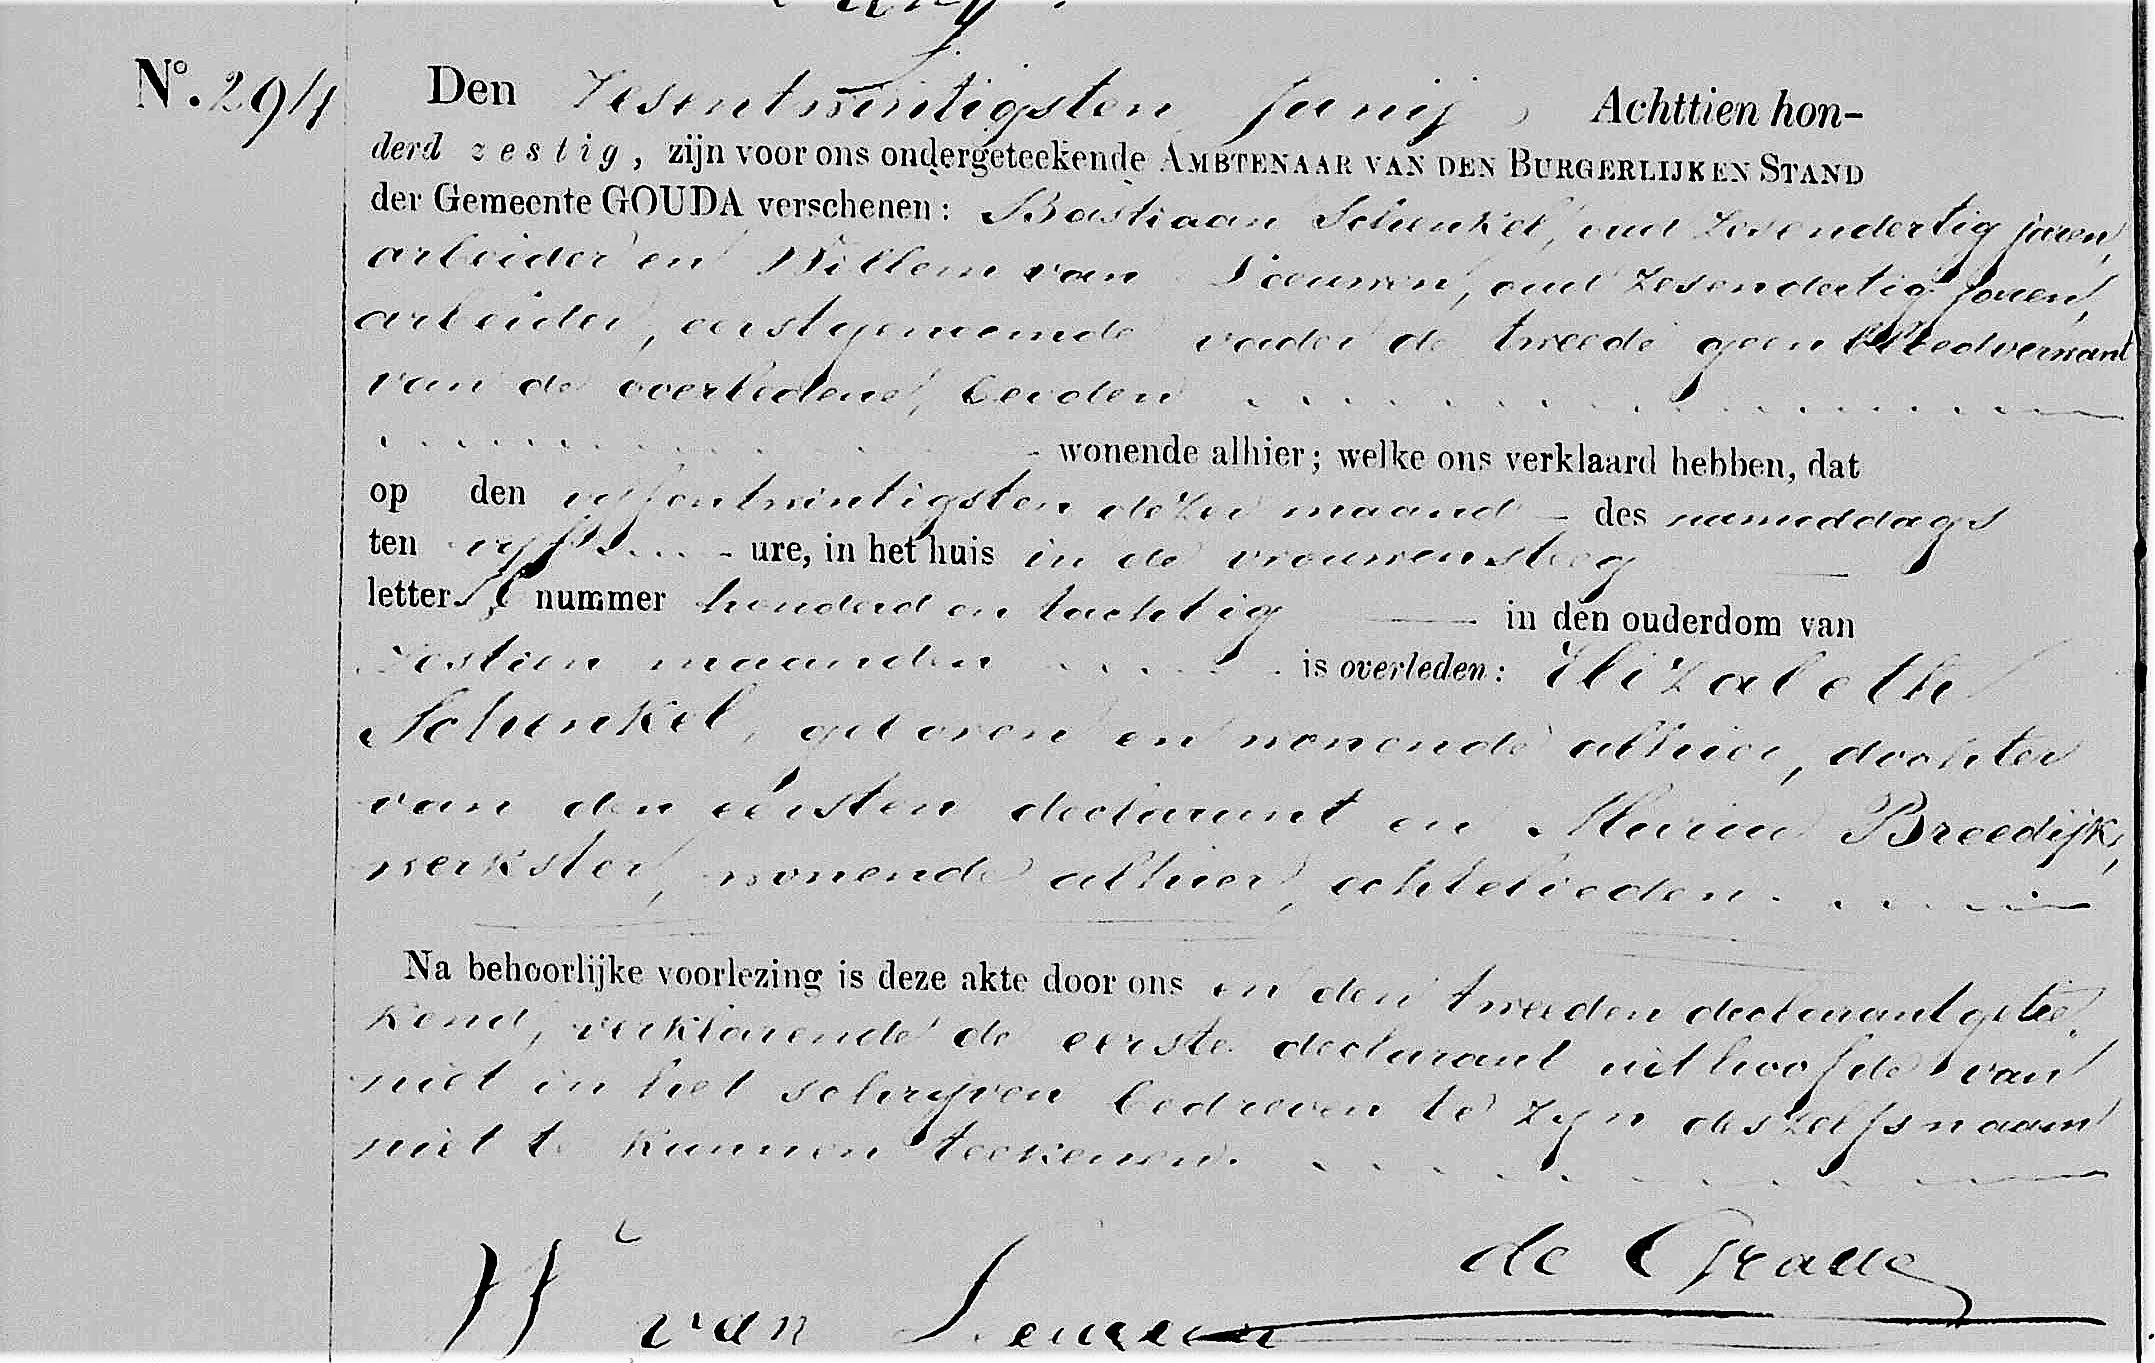 No. 294 Den Zesentwintigsten Junij, Achttien hon-
derd zestig, zijn voor ons ondergeteekende AMBTENAAR VAN DEN BURGERLIJKEN STAND
der Gemeente GOUDA verschenen: Bastiaan Schenkel, oud Zesendertig jaren,
arbeider en Willem van Leeuwen, oud Zesendertig jaren,
arbeider, eerstgenoemde vader de tweede geen bloedverwant
van de overledene, beiden
wonende alhier; welke ons verklaard hebben, dat
op den vijfentwintigsten dezer maand – des namiddags
ten vijf ure, in het huis in de vrouwensteeg
letter nummer honderd en tachtig in den ouderdom van
Zestien maanden is overleden: Elizabeth
Schenkel, geboren en wonende alhier, dochter
van den eersten declarant en Maria Breedijk,
werkster, wonende alhier, echtelieden.
Na behoorlijke voorlezing is deze akte door ons en den tweeden declarant getee-
kend, verklarende de eerste declarant uit hoofde van
niet in het schrijven bedreven te zyn deszelfs naam
niet te kunnen teekenen.
de Graaf
W van Leeuwen